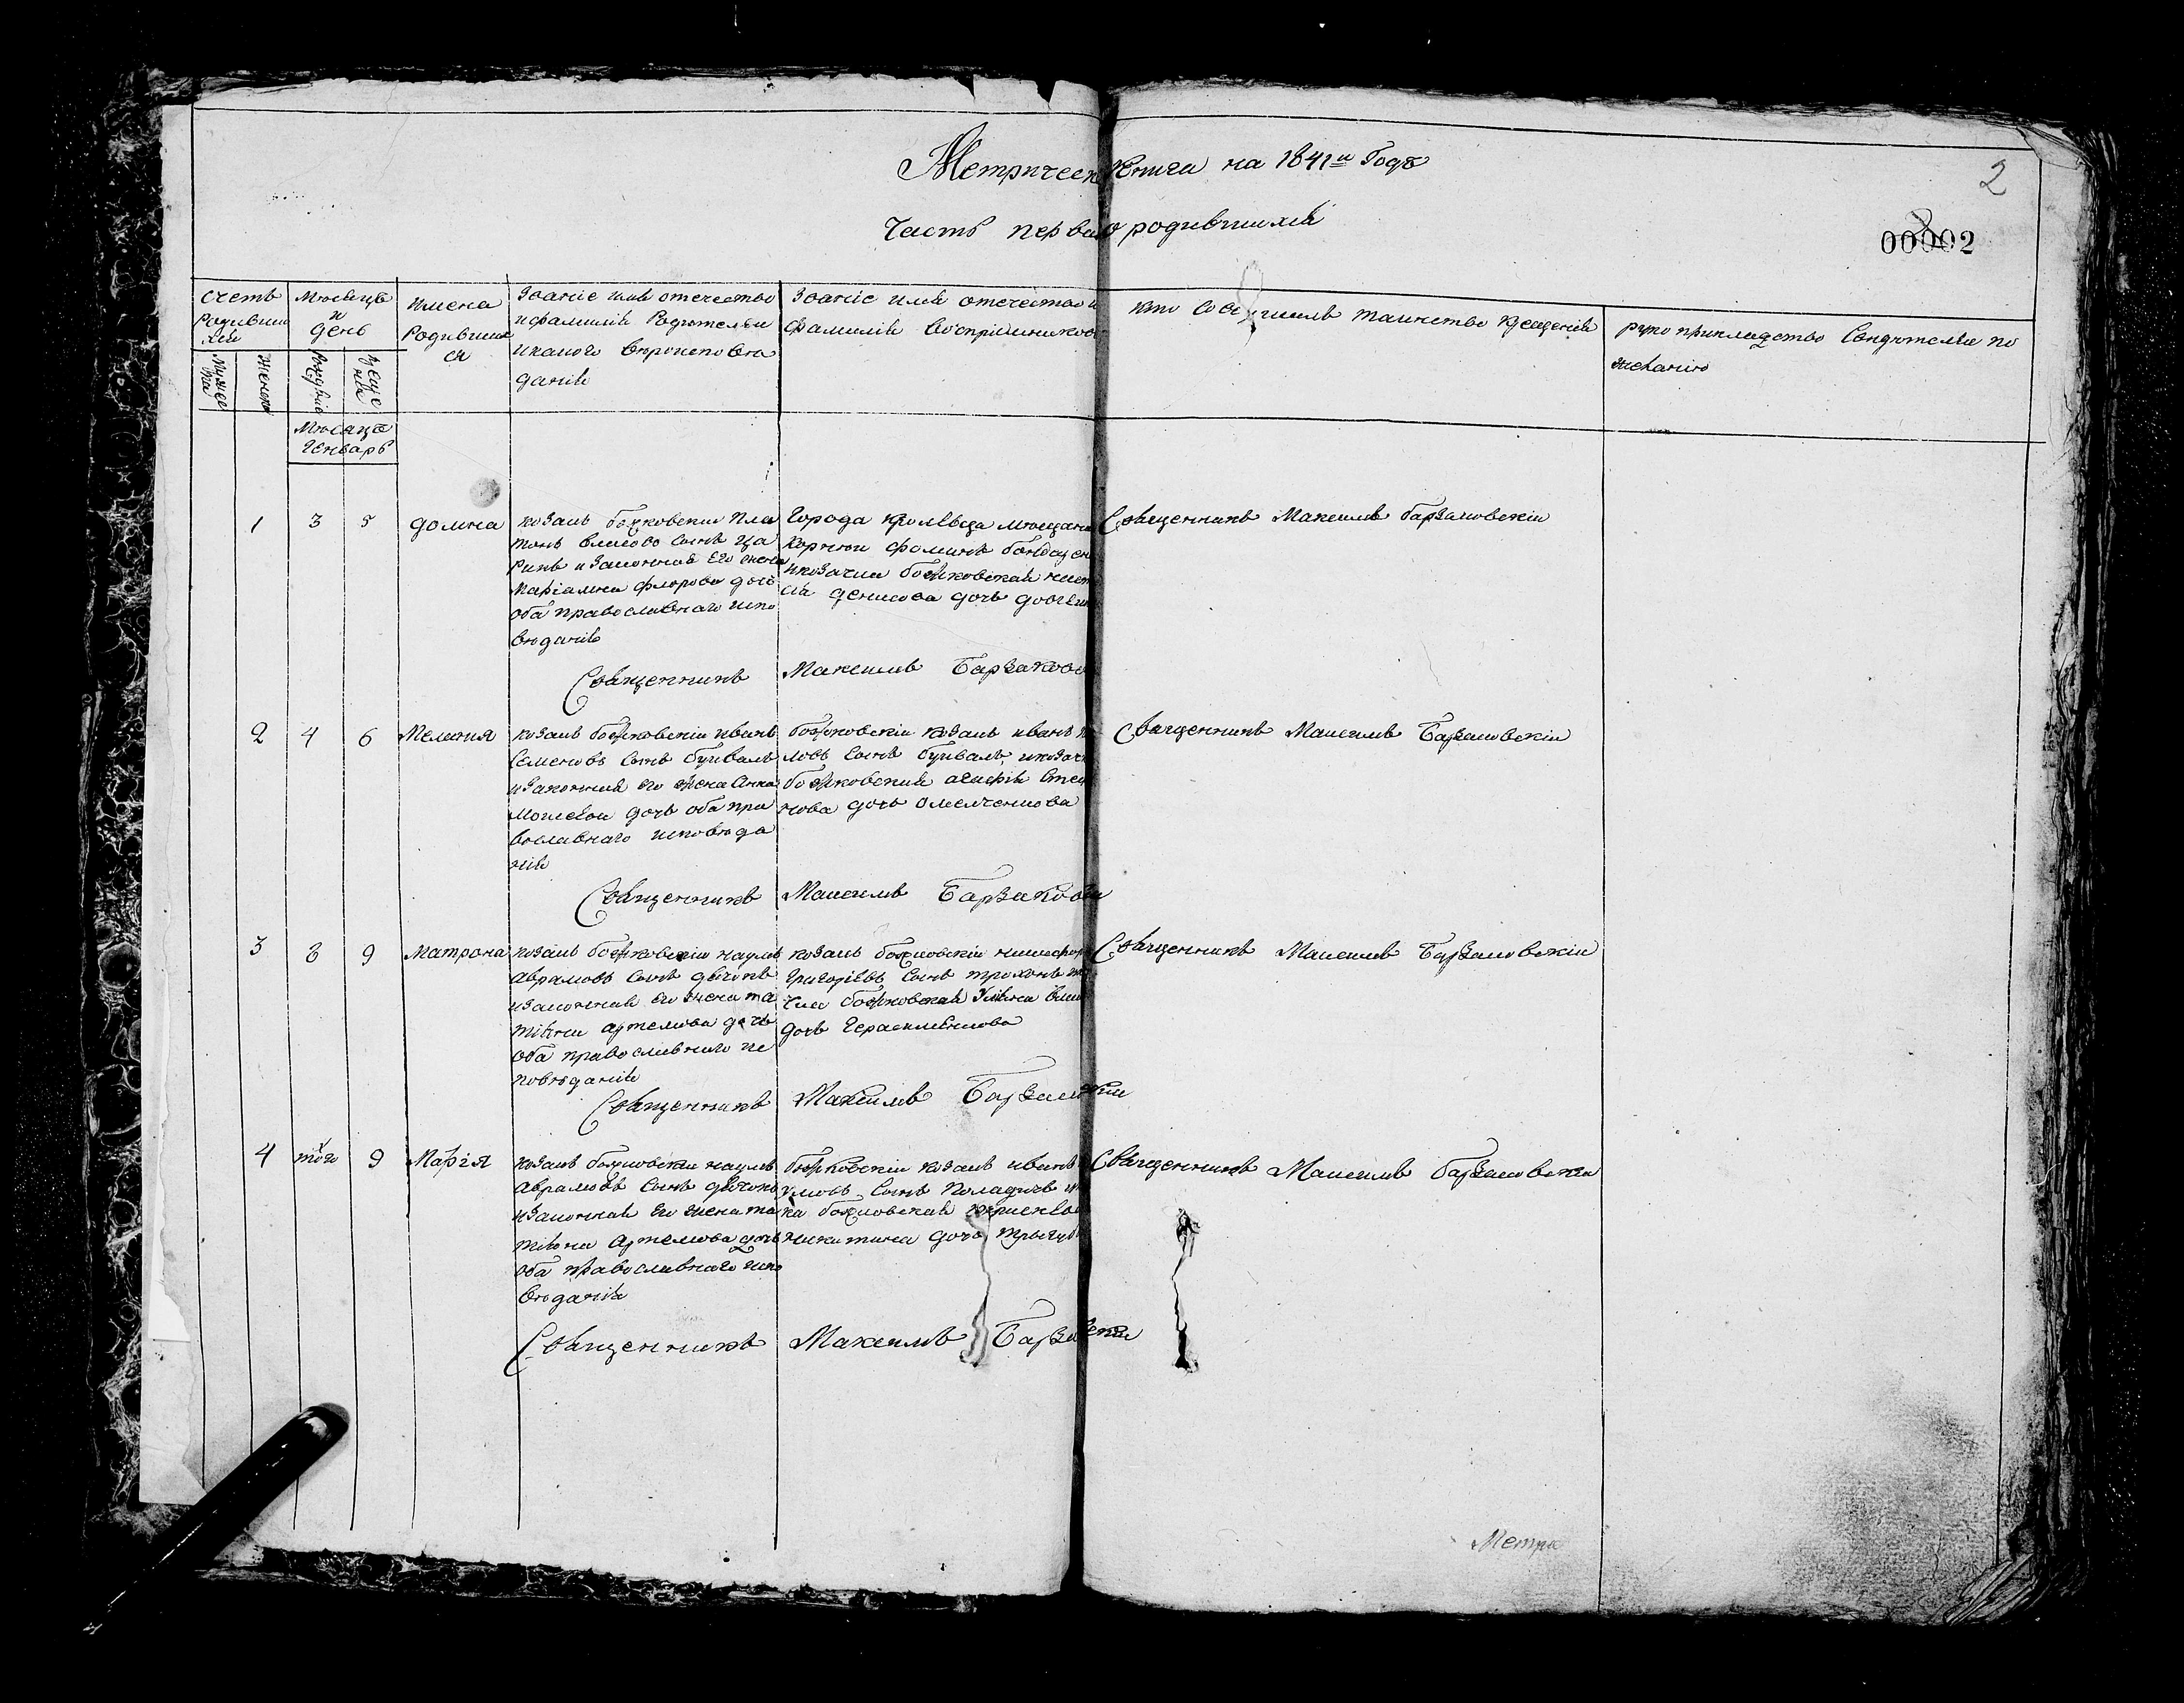 Метрическ Книга на 1841й Годъ
2
Часть перва о родившихся
00002
Счетъ Родивши хся
Мѣсяцъ и День
Имена Родивших ся
Званіе имя отечество и фамилія Родителей и какого вѣроисповѣ данія
Званіе имя отечество и фамилія воспріемниковъ
Кто совершилъ таинство крещенія
Рукоприкладство Свидетелей по желанію
Мужес ка
Женска
Рождения
Креще нія
Мѣсяцъ Генварь
1 3 5 Домна
козакъ божковскій Пла
тонъ Власовъ сынъ Ца
рикъ и законная его жена
Маріамна Флорова дочь
оба православнаго испо
вѣданія
Города Кролевца мещани
Корнюй Фоминъ бондарен
и козачка божковская
Денисова дочь
Священникъ Максимъ Барзаковскій
Священникъ Максимъ Барзаков
2 4 6 Мелания
козакъ божковскій Иванъ
Семеновъ сынъ Буцваль
и законная его жена Анна
Моисеева дочь оба пра
вославнаго исповѣда
нія
божковскій козакъ Иванъ
ловъ сынъ Буцваль, и козач
божковская Агафія Степ
нова дочь Омелченкова
Священникъ Максимъ Барзаковскій
Священникъ Максимъ Барзаковски
3 8 9 Матрона
козакъ божковскій Наумъ
Аврамовъ сынъ Дячокъ
и законная его жена та
тіяна Артемова дочь
оба православнаго ис
повѣданія
козакъ божковскій Никифор
Григоріевъ сынъ
чка божковская Уліяна Влас
дочь Герасименкова
Священникъ Максимъ Барзаковскій
Священникъ Максимъ Барзаковскій
4 того 9 Марія
козакъ божковскій Наумъ
Аврамовъ сынъ Дячокъ
и законная его жена та
тіяна Артемова дочь
оба православнаго испо
вѣданія
божковскій козакъ Иванъ
умовъ сынъ Коладичъ
ка божковская
Никитина дочь
Священникъ Максимъ Барзаковскій
Священникъ Максимъ Барзаковски
Метри